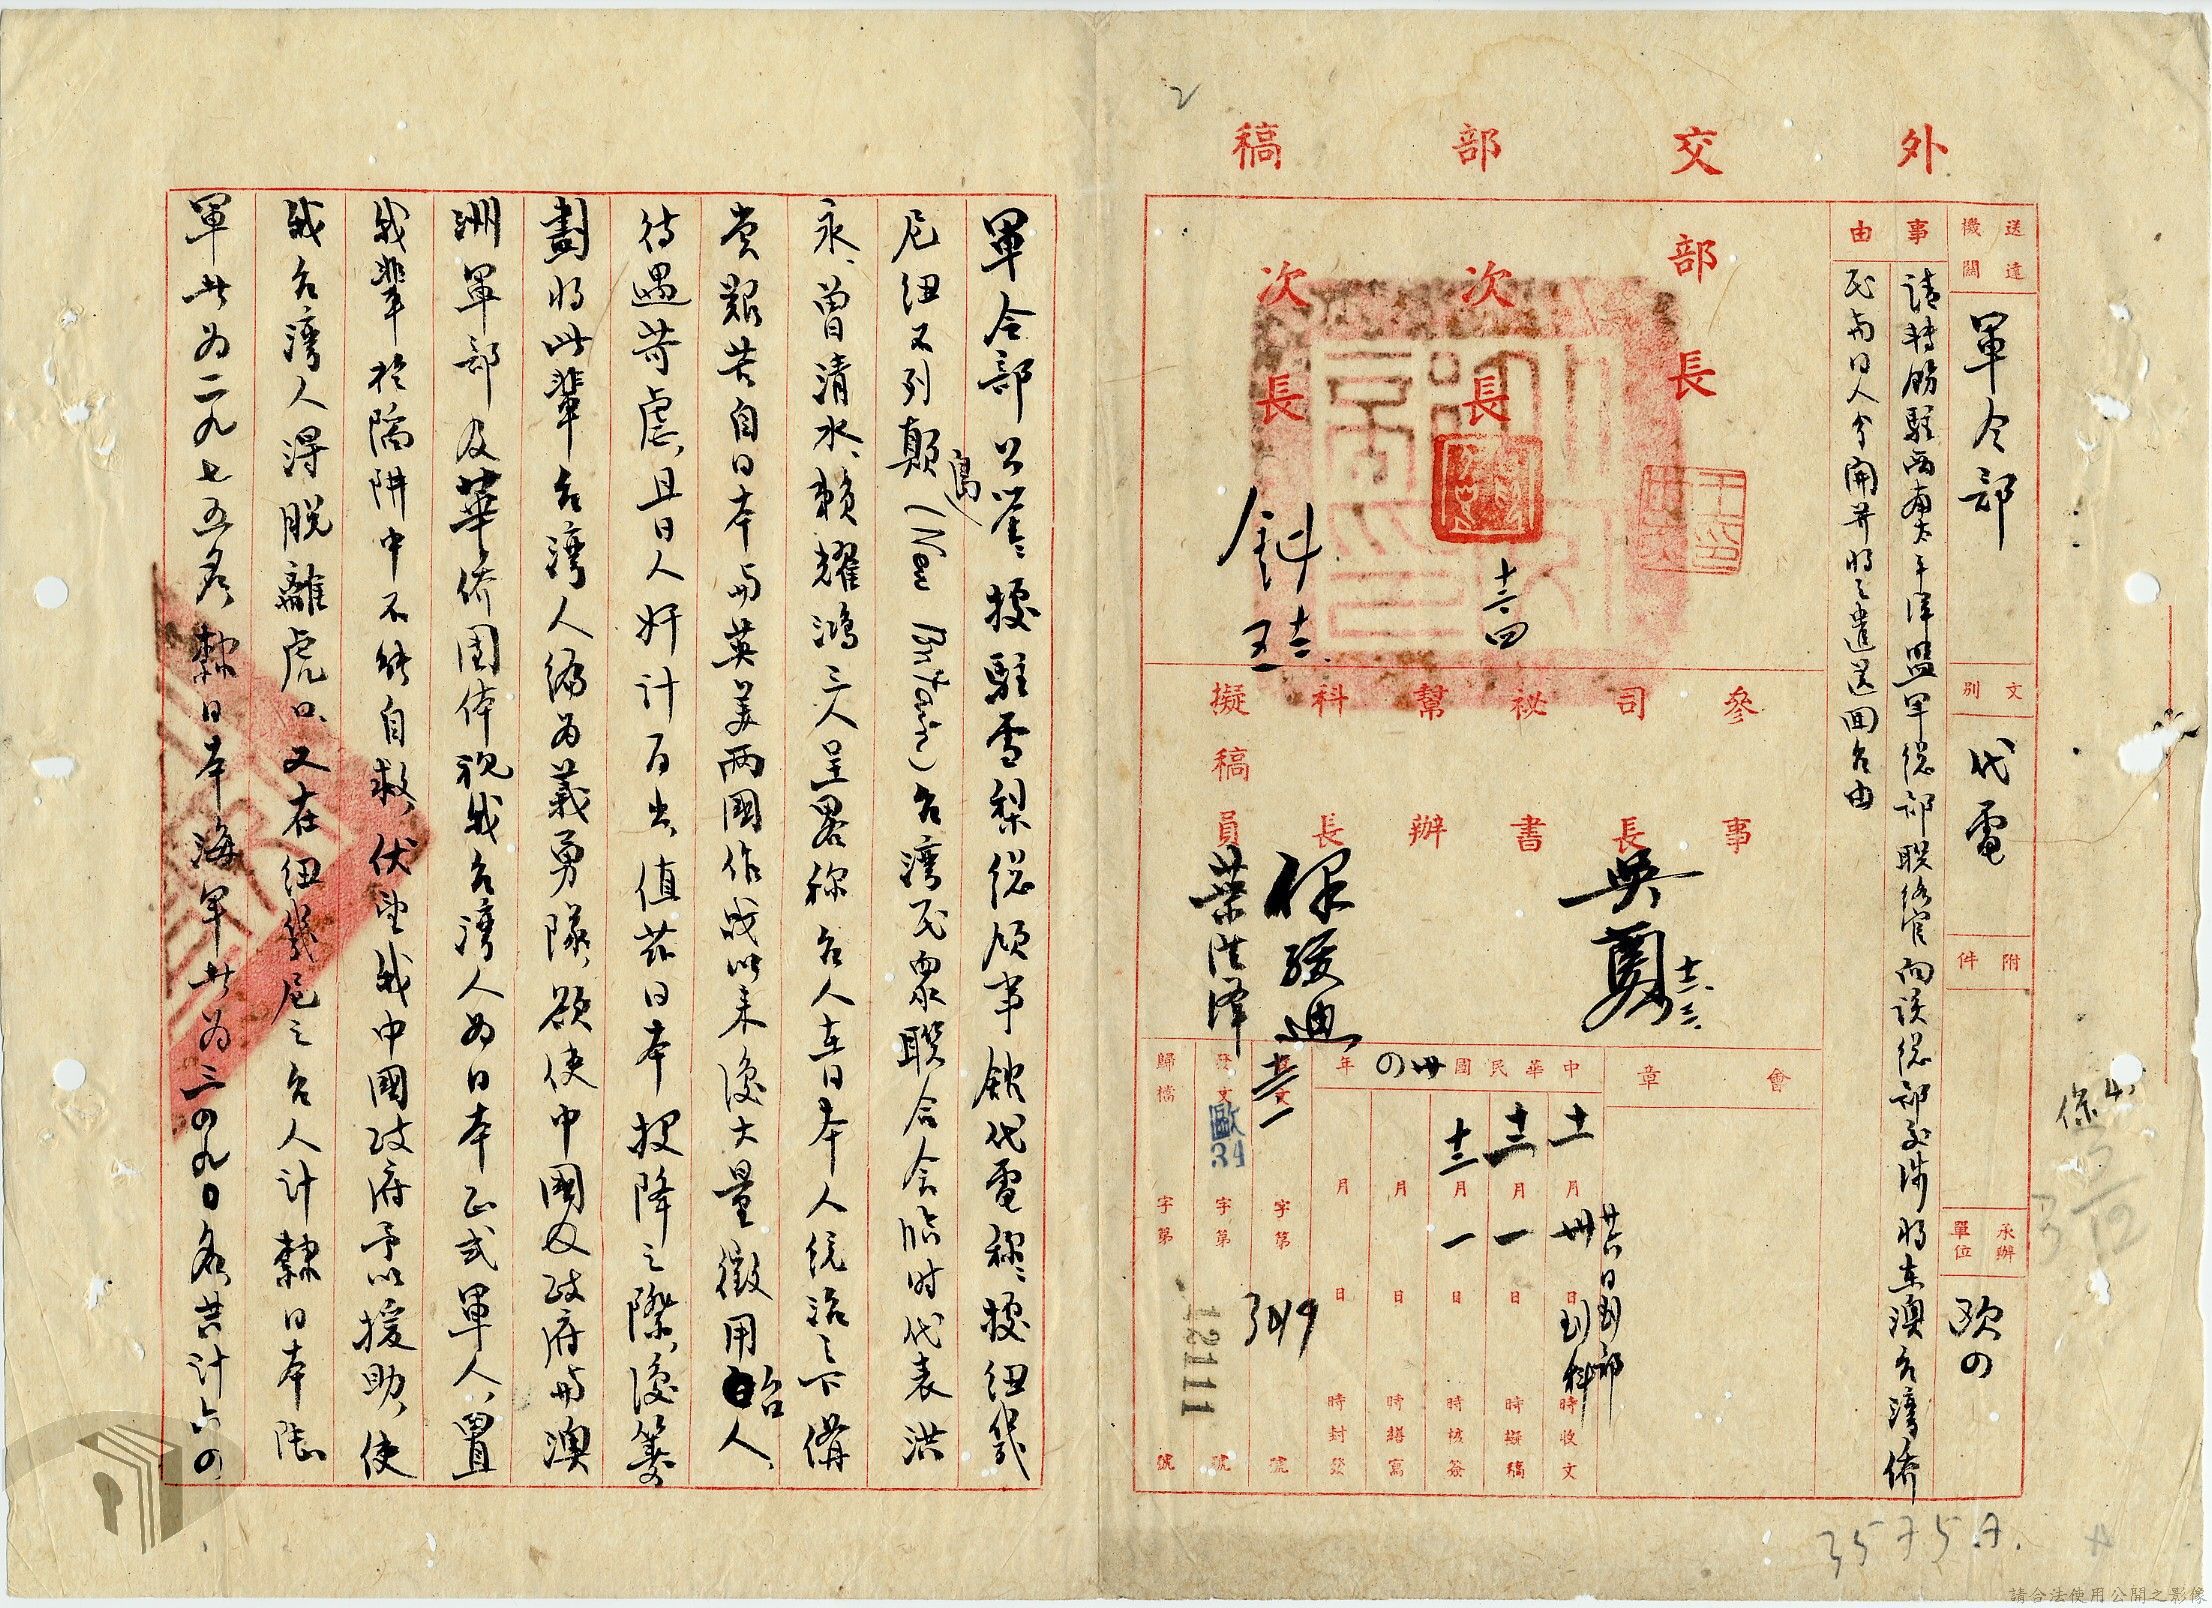 外交部稿
送達機關
軍令部
文別
代電
附件
承辦單位
歐四
事由
請轉飭駐西南太平洋盟軍總部聯絡官向該總部交涉將在澳台灣僑
民與日人分開并將之遣送回台由
部長
次長
次長
十二 四
參事
司長
祕書
幫辦
科長
擬稿員
吳
十二 三
葉
會章
中華民國卅四年
十一月卅日 時收文
廿六日到部
到科
十二月一日 時擬稿
十二月一日 時核簽
月 日 時繕寫
月 日 時封發
收文 字第 號
3419
發文 歐34 字第 號
12111
歸檔 字第 號
軍令部公鑒：據駐雪梨總領事館代電稱：據紐幾
尼紐不列顛島（New Britain）台灣民眾聯合會臨時代表洪
永、曾清水、賴耀鴻三人呈畧稱台人在日本人統治之下備
嘗艱苦自日本與英美兩國作戰以來復大量徵用台人、
待遇苛虐、且日人奸計百出、值茲日本投降之際、復籌
劃將此輩台灣人編為義勇隊、欲使中國及政府與澳
洲軍部及華僑團体視我台灣人為日本正式軍人、置
我輩於陷阱中不能自救、伏望我中國政府予以援助、使
我台灣人得脫離虎口、又在紐幾尼之台人計隸日本陸
軍者為二九七五名隸日本海軍者為三四九〇名共計六四
3575.A.
請合法使用公開之影像